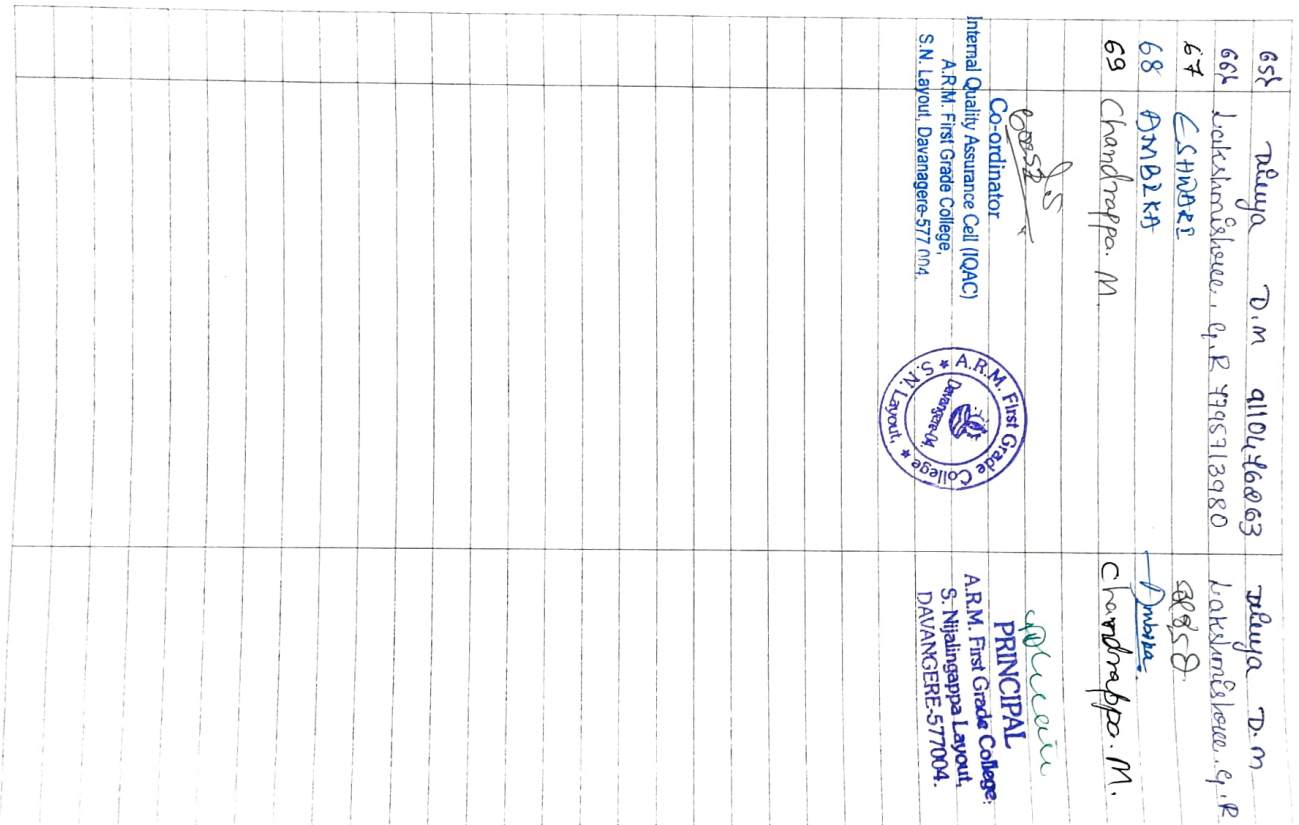 65 Divya D.M 9110476863 Divya D.M
66 Lakshmishree. G.R 7795713980 Lakshmishree. G.R
67 ESHWARI
68 AMBIKA Ambika
69 Chandrappa. M. Chandrappa. M.
Co-ordinator
Internal Quality Assurance Cell (IQAC)
A.R.M. First Grade College,
S.N. Layout, Davanagere-577 004.
A.R.M. First Grade College
★ S.N. Layout, ★
Davangere-04.
PRINCIPAL
A.R.M. First Grade College,
S. Nijalingappa Layout,
DAVANGERE-577004.